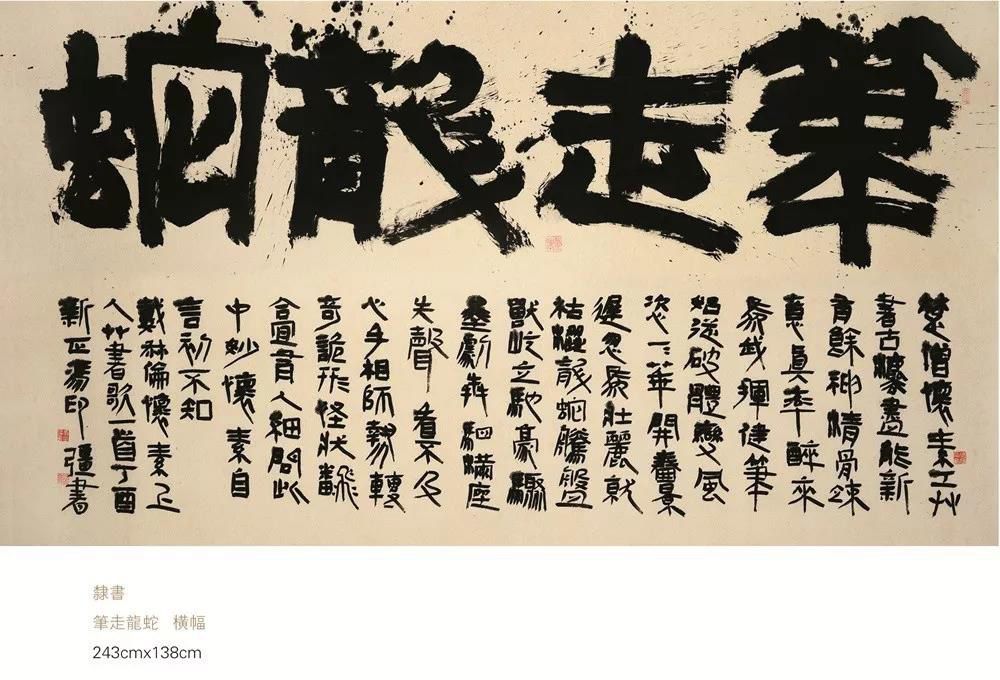 筆走龍蛇
楚僧懷素工艸
書古灋盡能新
有餘神清骨竦
意真率醉來
為我揮健筆
始從破體變風
姿一一華開春景
遲忽為壯麗就
枯澀龍蛇騰盤
獸屹立馳豪驟
墨劇奔駟滿座
失聲看不及
心手相師勢轉
奇詭形怪狀飜
合宜有人細問此
中妙懷素自
言初不知
戴叔倫懷素上
人艸書歌一首丁酉
新正馮印彊書
隸書
筆走龍蛇 橫幅
243cmx138cm